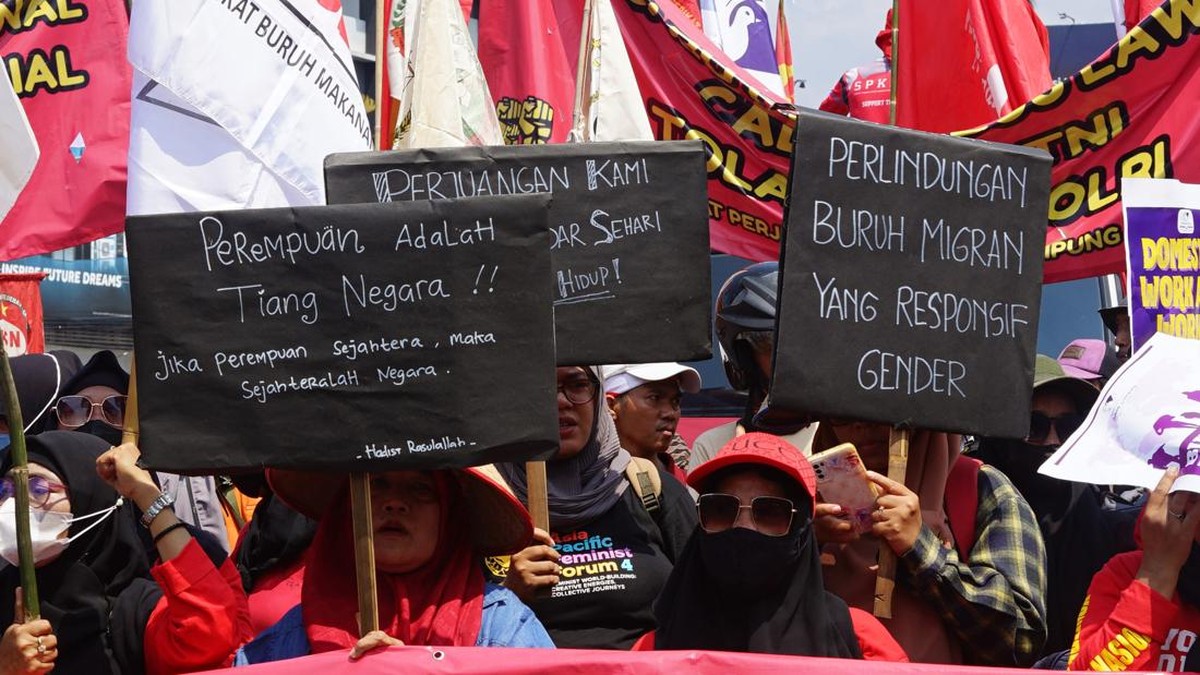 NIAL
KAT BURUH MAKANA
SPK
SUPPORT
TOLA
TNI
OLRI
AT PERJU
MPUNG
INSPIRE FUTURE DREAMS
PEREMPUAN ADALAH
TIANG NEGARA !!
jika PEREMPUAN SEJAHTERA, MAKA
SEJAHTERALAH NEGARA.
- Hadist Rasulallah -
PERJUANGAN KAMI
DAR SEHARI
HIDUP!
PERLINDUNGAN
BURUH MIGRAN
YANG RESPONSIF
GENDER
DOMES
WORK
WOR
Asia
Pacific
Feminist
Forum 4
FEMINIST WORLD-BUILDING:
CREATIVE ENERGIES,
COLLECTIVE JOURNEYS
GUCCI
NASIO